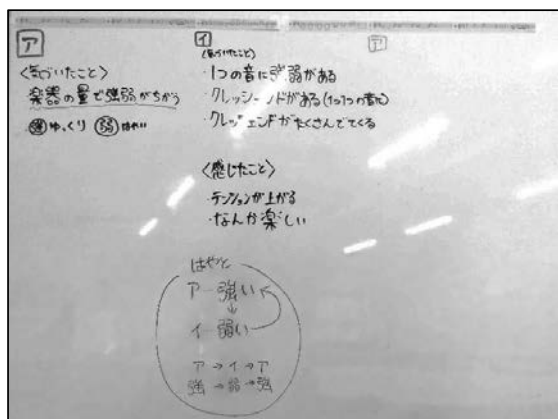 ア
<気づいたこと>
楽器の量で強弱がちがう
・強ゆっくり 弱はやい
イ
<気づいたこと>
・1つの音に強弱がある
・クレッシェンドがある(1つ1つの音に)
・クレッシェンドがたくさんでてくる
<感じたこと>
・テンションが上がる
・なんか楽しい
ア
はやと
ア 強い
↓
イ 弱い
ア→イ→ア
強→弱→強